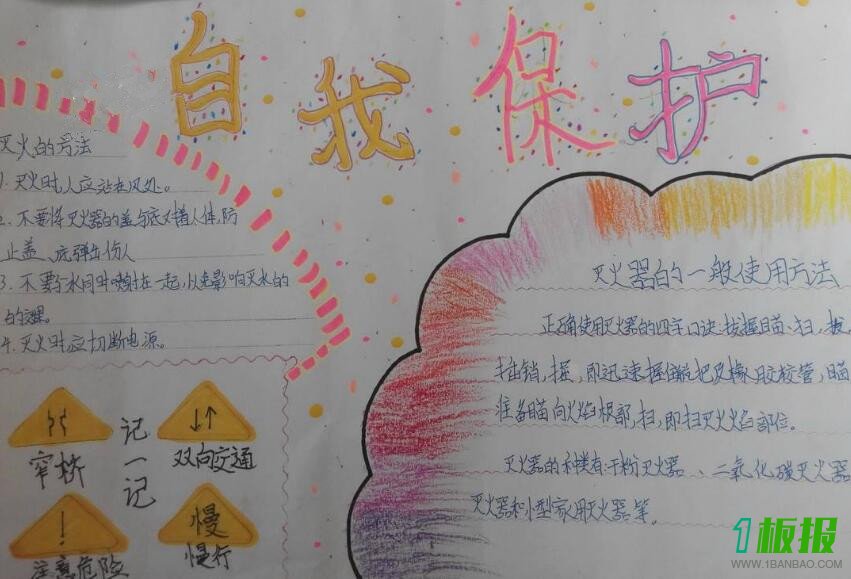 自我保护
灭火的方法
1.灭火时,人应站在风处。
2.不要将灭火器的盖与底对着人体,防
止盖、底弹出伤人
3.不要与水同时喷射在一起,以免影响灭火的
4.灭火时应切断电源。
窄桥
记一记
双向交通
注意危险
慢
慢行
灭火器的一般使用方法
正确使用灭火器的四字口诀:拔、握、瞄、扫,拔,
插销,握,即迅速握住 把及橡胶软管,瞄
准备瞄向火焰根部,扫,即扫灭火火焰部位。
灭火器的种类有:干粉灭火器、二氧化碳灭火器
灭火器和小型家用灭火器等。
1板报
WWW.1BANBAO.COM